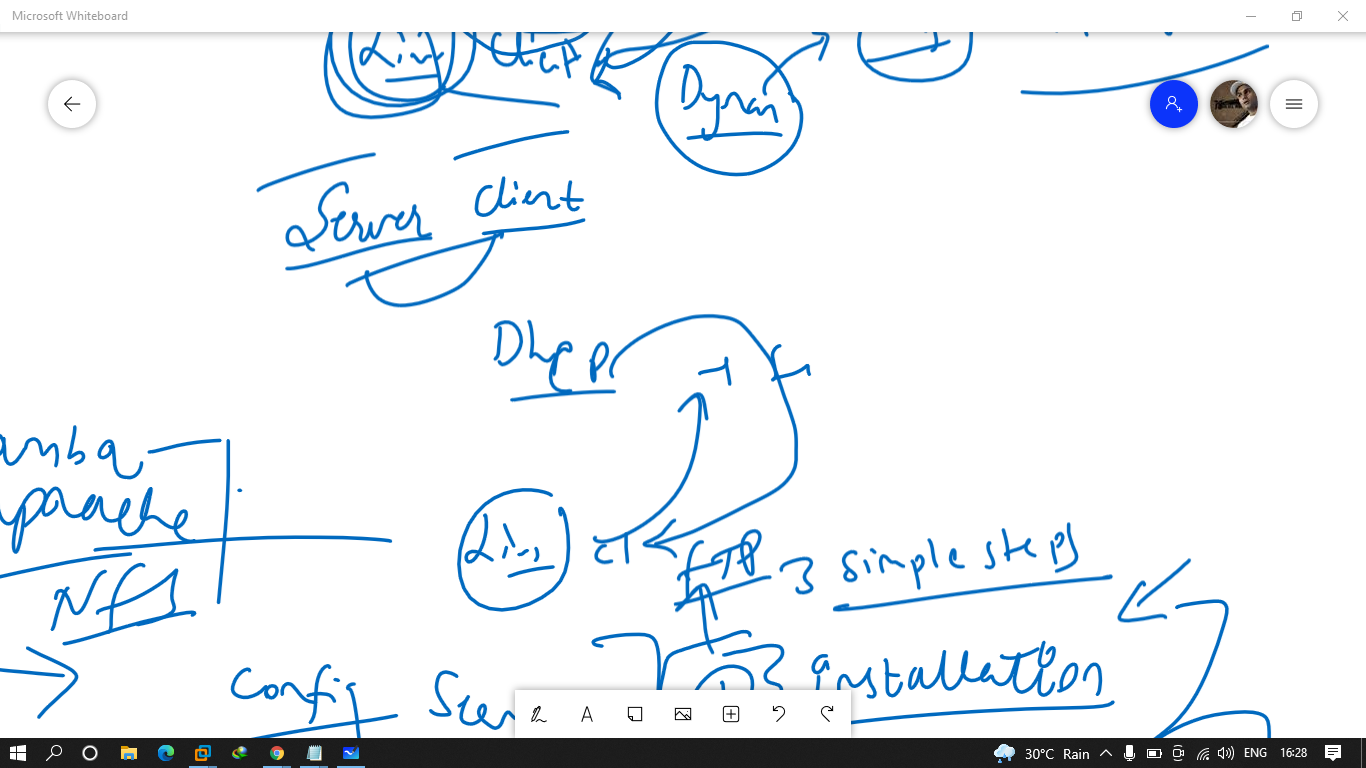 Microsoft Whiteboard
Lin Client
Dynam
Server Client
Dhcp
amba
apache
NFS
Lin cl FTP 3 simple steps
Config Ser
1 installation
30°C Rain ENG 16:28